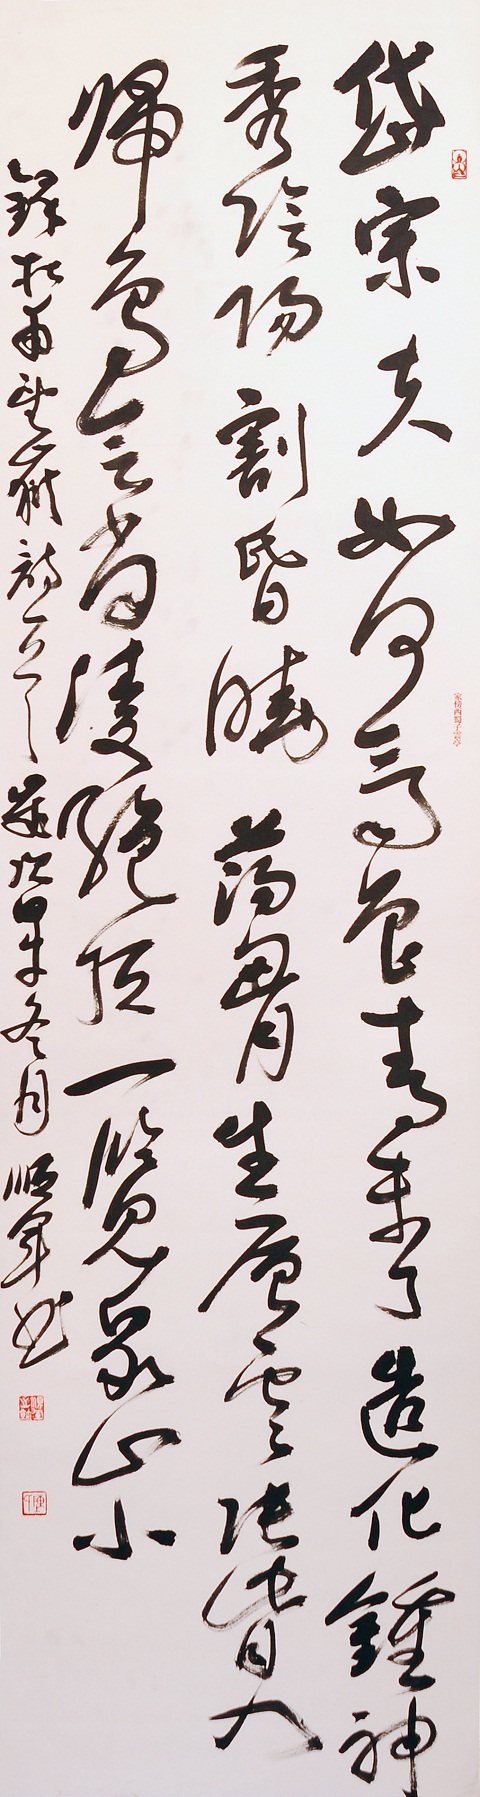 岱宗夫如何齊魯青未了造化鍾神
秀陰陽割昏曉蕩胷生層雲決眥入
歸鳥會當凌絕頂一覽眾山小
錄杜甫望嶽詩一首 歲次甲午冬月 順軍書
家傍西蜀子雲亭